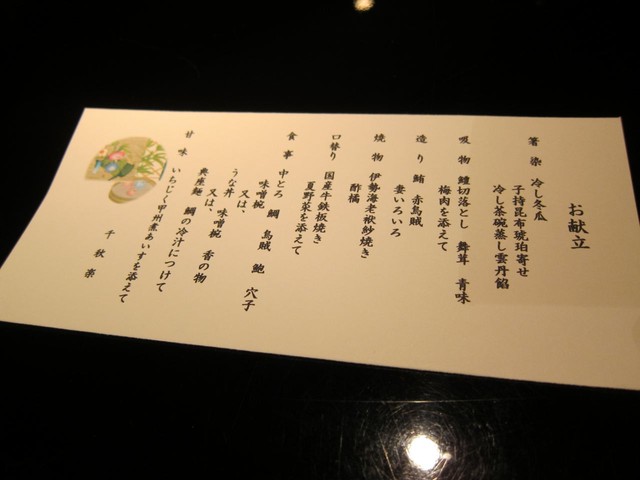 お献立
箸染 冷し冬瓜
子持昆布琥珀寄せ
冷し茶碗蒸し雲丹餡
吸物 鱧切落とし 舞茸 青味
梅肉を添えて
造り 鮪 赤烏賊
妻いろいろ
焼物 伊勢海老袱紗焼き
酢橘
口替り 国産牛鉄板焼き
夏野菜を添えて
食事 中とろ 鯛 烏賊 鮑 穴子
味噌椀 又は、
うな丼 味噌椀 香の物
又は、
典座麺 鯛の冷汁につけて
甘味 いちじく甲州煮あいすを添えて
千秋楽